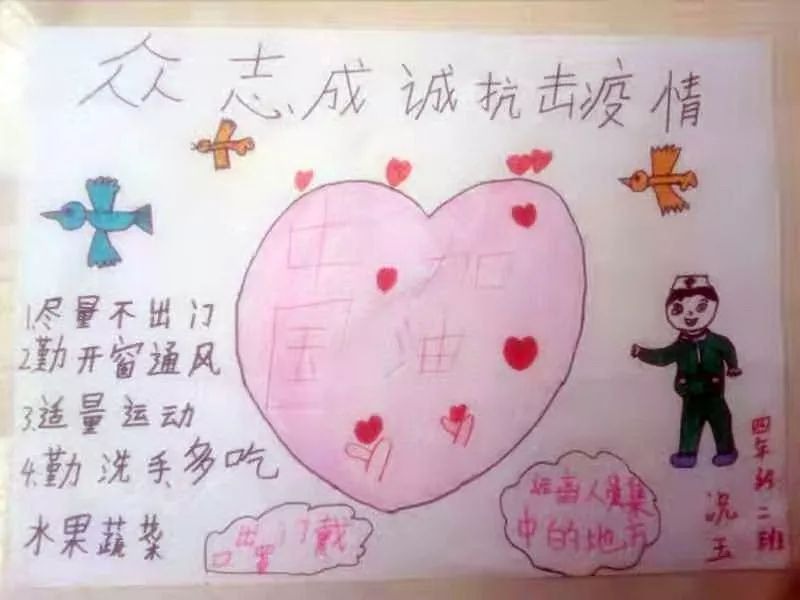 众志成诚抗击疫情
中国
加油
1.尽量不出门
2.勤开窗通风
3.适量运动
4.勤洗手多吃
水果蔬菜
出门戴
口罩
人员集
中的地方
四年级二班
况玉